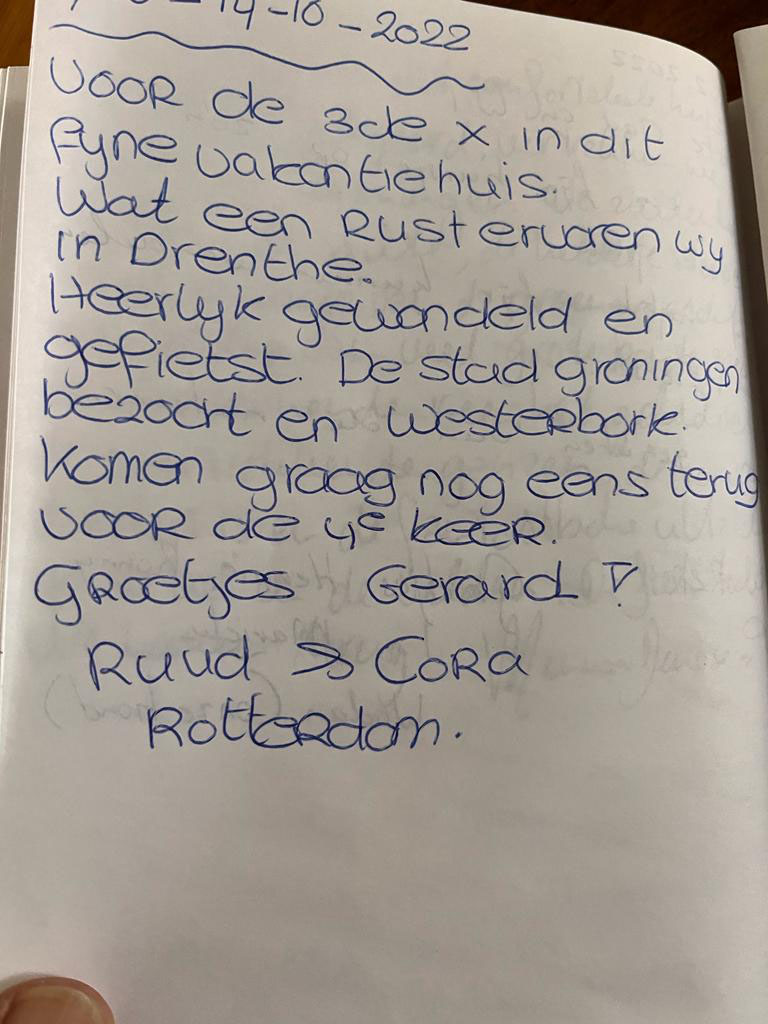 -14-10-2022
VOOR de 3de x in dit
fyne vakantiehuis.
Wat een Rust ervaren wy
in Drenthe.
Heerlyk gewandeld en
gefietst. De stad groningen
bezocht en Westerbork.
Komen graag nog eens terug
VOOR de 4e KEER.
Groetjes Gerard
Ruud & CORA
ROTTERdam.